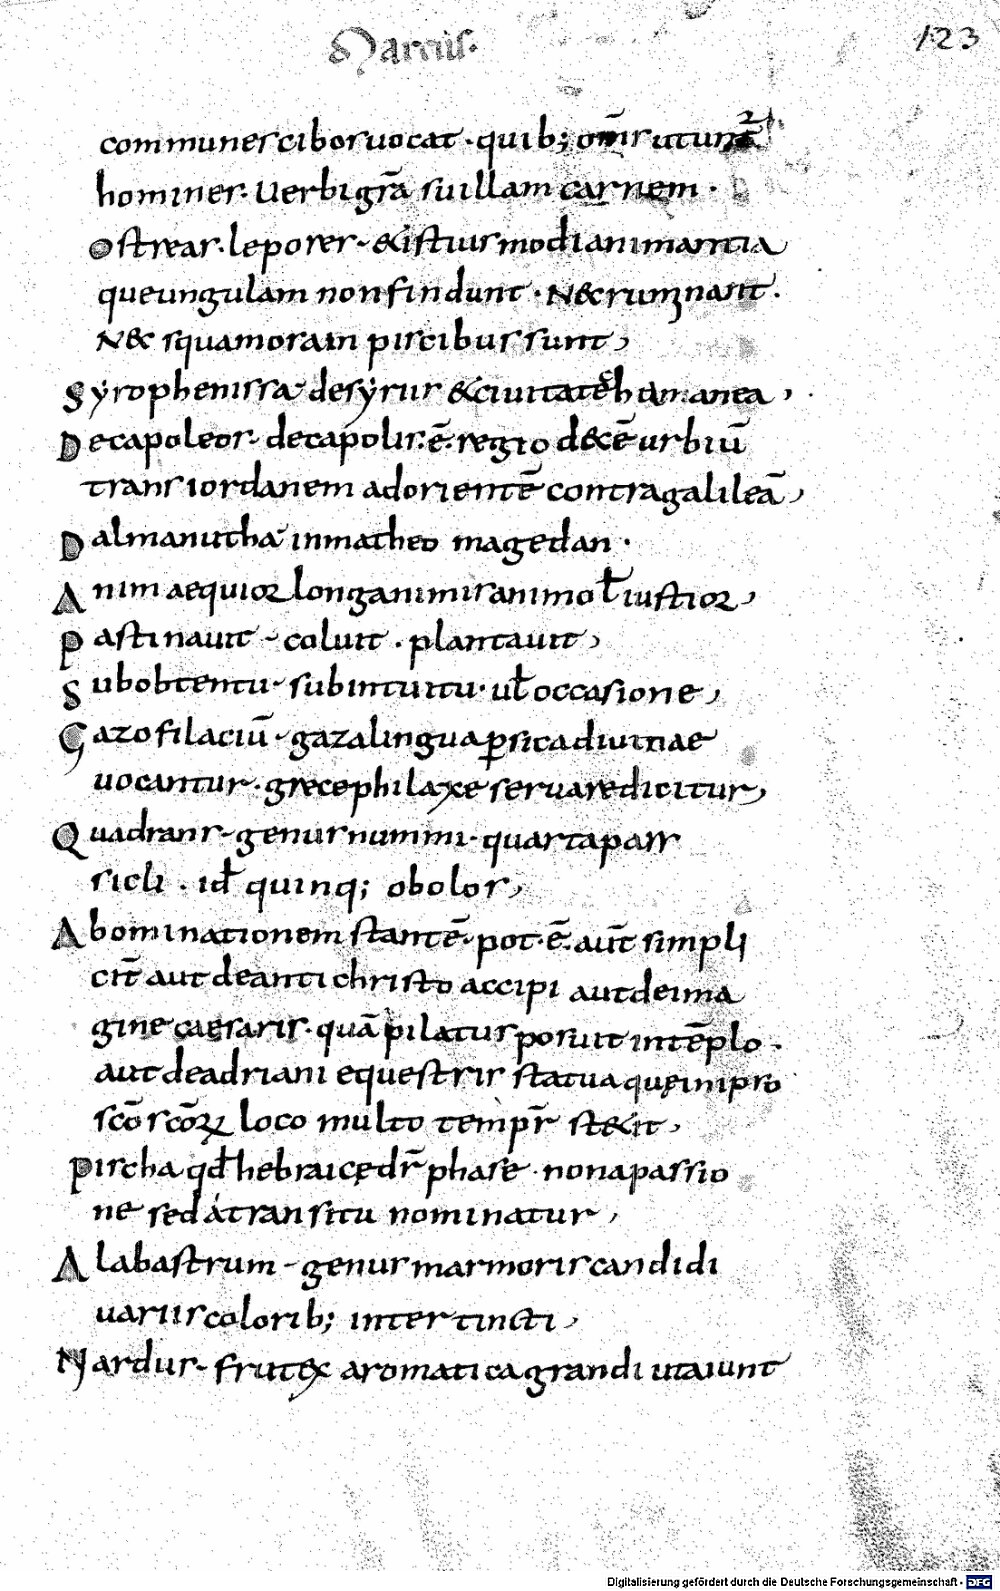 Marcus.
123
communes cibos uocat · quib; om̄s utunt᷑
homines · Uerbi gr̄a suillam carnem ·
ostreas · lepores · & istiusmodi animantia
que ungulam non findunt · N& ruminant ·
N& squamosam piscibus sunt,
Syrophenissa · de syrus & ciuitate chananea,
Decapoleos · decapolis · ē · regio decē urbiū
trans iordanem ad orientē contra galileā,
Dalmanutha in matheo magedan ·
Animaequior longanimis animo ł iustior,
Pastinauit · coluit · plantauit,
Sub obtentu · sub intuitu · uł occasione,
Gazofilaciū · gaza lingua ꝑsica diuitiae
uocantur · grece philaxe seruare dicitur,
Quadrans · genus nummi · quarta pars
sicli · id̄ quinq; obolos,
Abominationem stantē · pot · ē · aut̄ simpli
cit̄ aut de antichristo accipi aut de ima
gine caesaris · quā pilatus posuit in tēplo ·
aut de adriani equestris statua que in ipso
sc̄o sc̄oꝝ loco multo temp̄r stetit,
Pascha qđ hebraicę dr̄ phase · non a passio
ne sed a transitu nominatur,
Alabastrum · genus marmoris candidi
uariis colorib; intertincti,
Nardus · frutex aromatica grandi ut aiunt
Digitalisierung gefördert durch die Deutsche Forschungsgemeinschaft - DFG